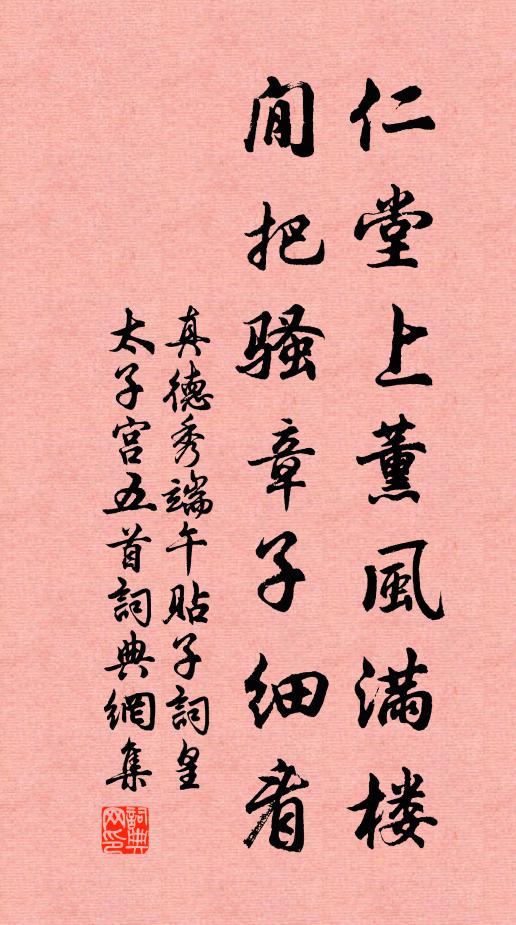 仁堂上薰風滿楼
閒把騷章子細看
真德秀端午貼子詞皇
太子宮五首詞典網集
詞典
网印